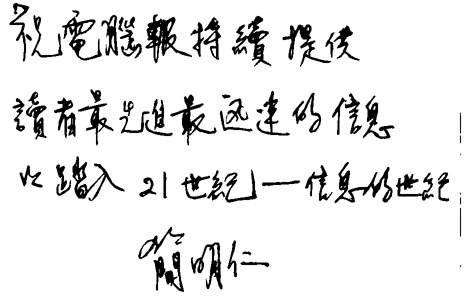 祝電腦報持續提供
讀者最先進最迅速的信息
以踏入21世紀—信息的世紀
簡明仁